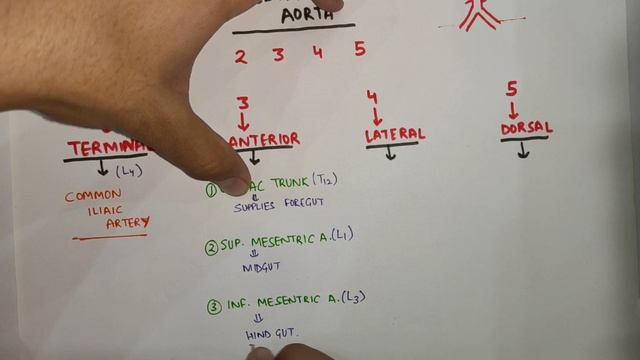 AORTA
2 3 4 5
3 4 5
ANTERIOR LATERAL DORSAL
(L4)
COMMON
ILIAIC
ARTERY
① TRUNK (T12)
SUPPLIES FOREGUT
② SUP. MESENTRIC A. (L1)
MIDGUT
③ INF. MESENTRIC A. (L3)
HIND GUT.